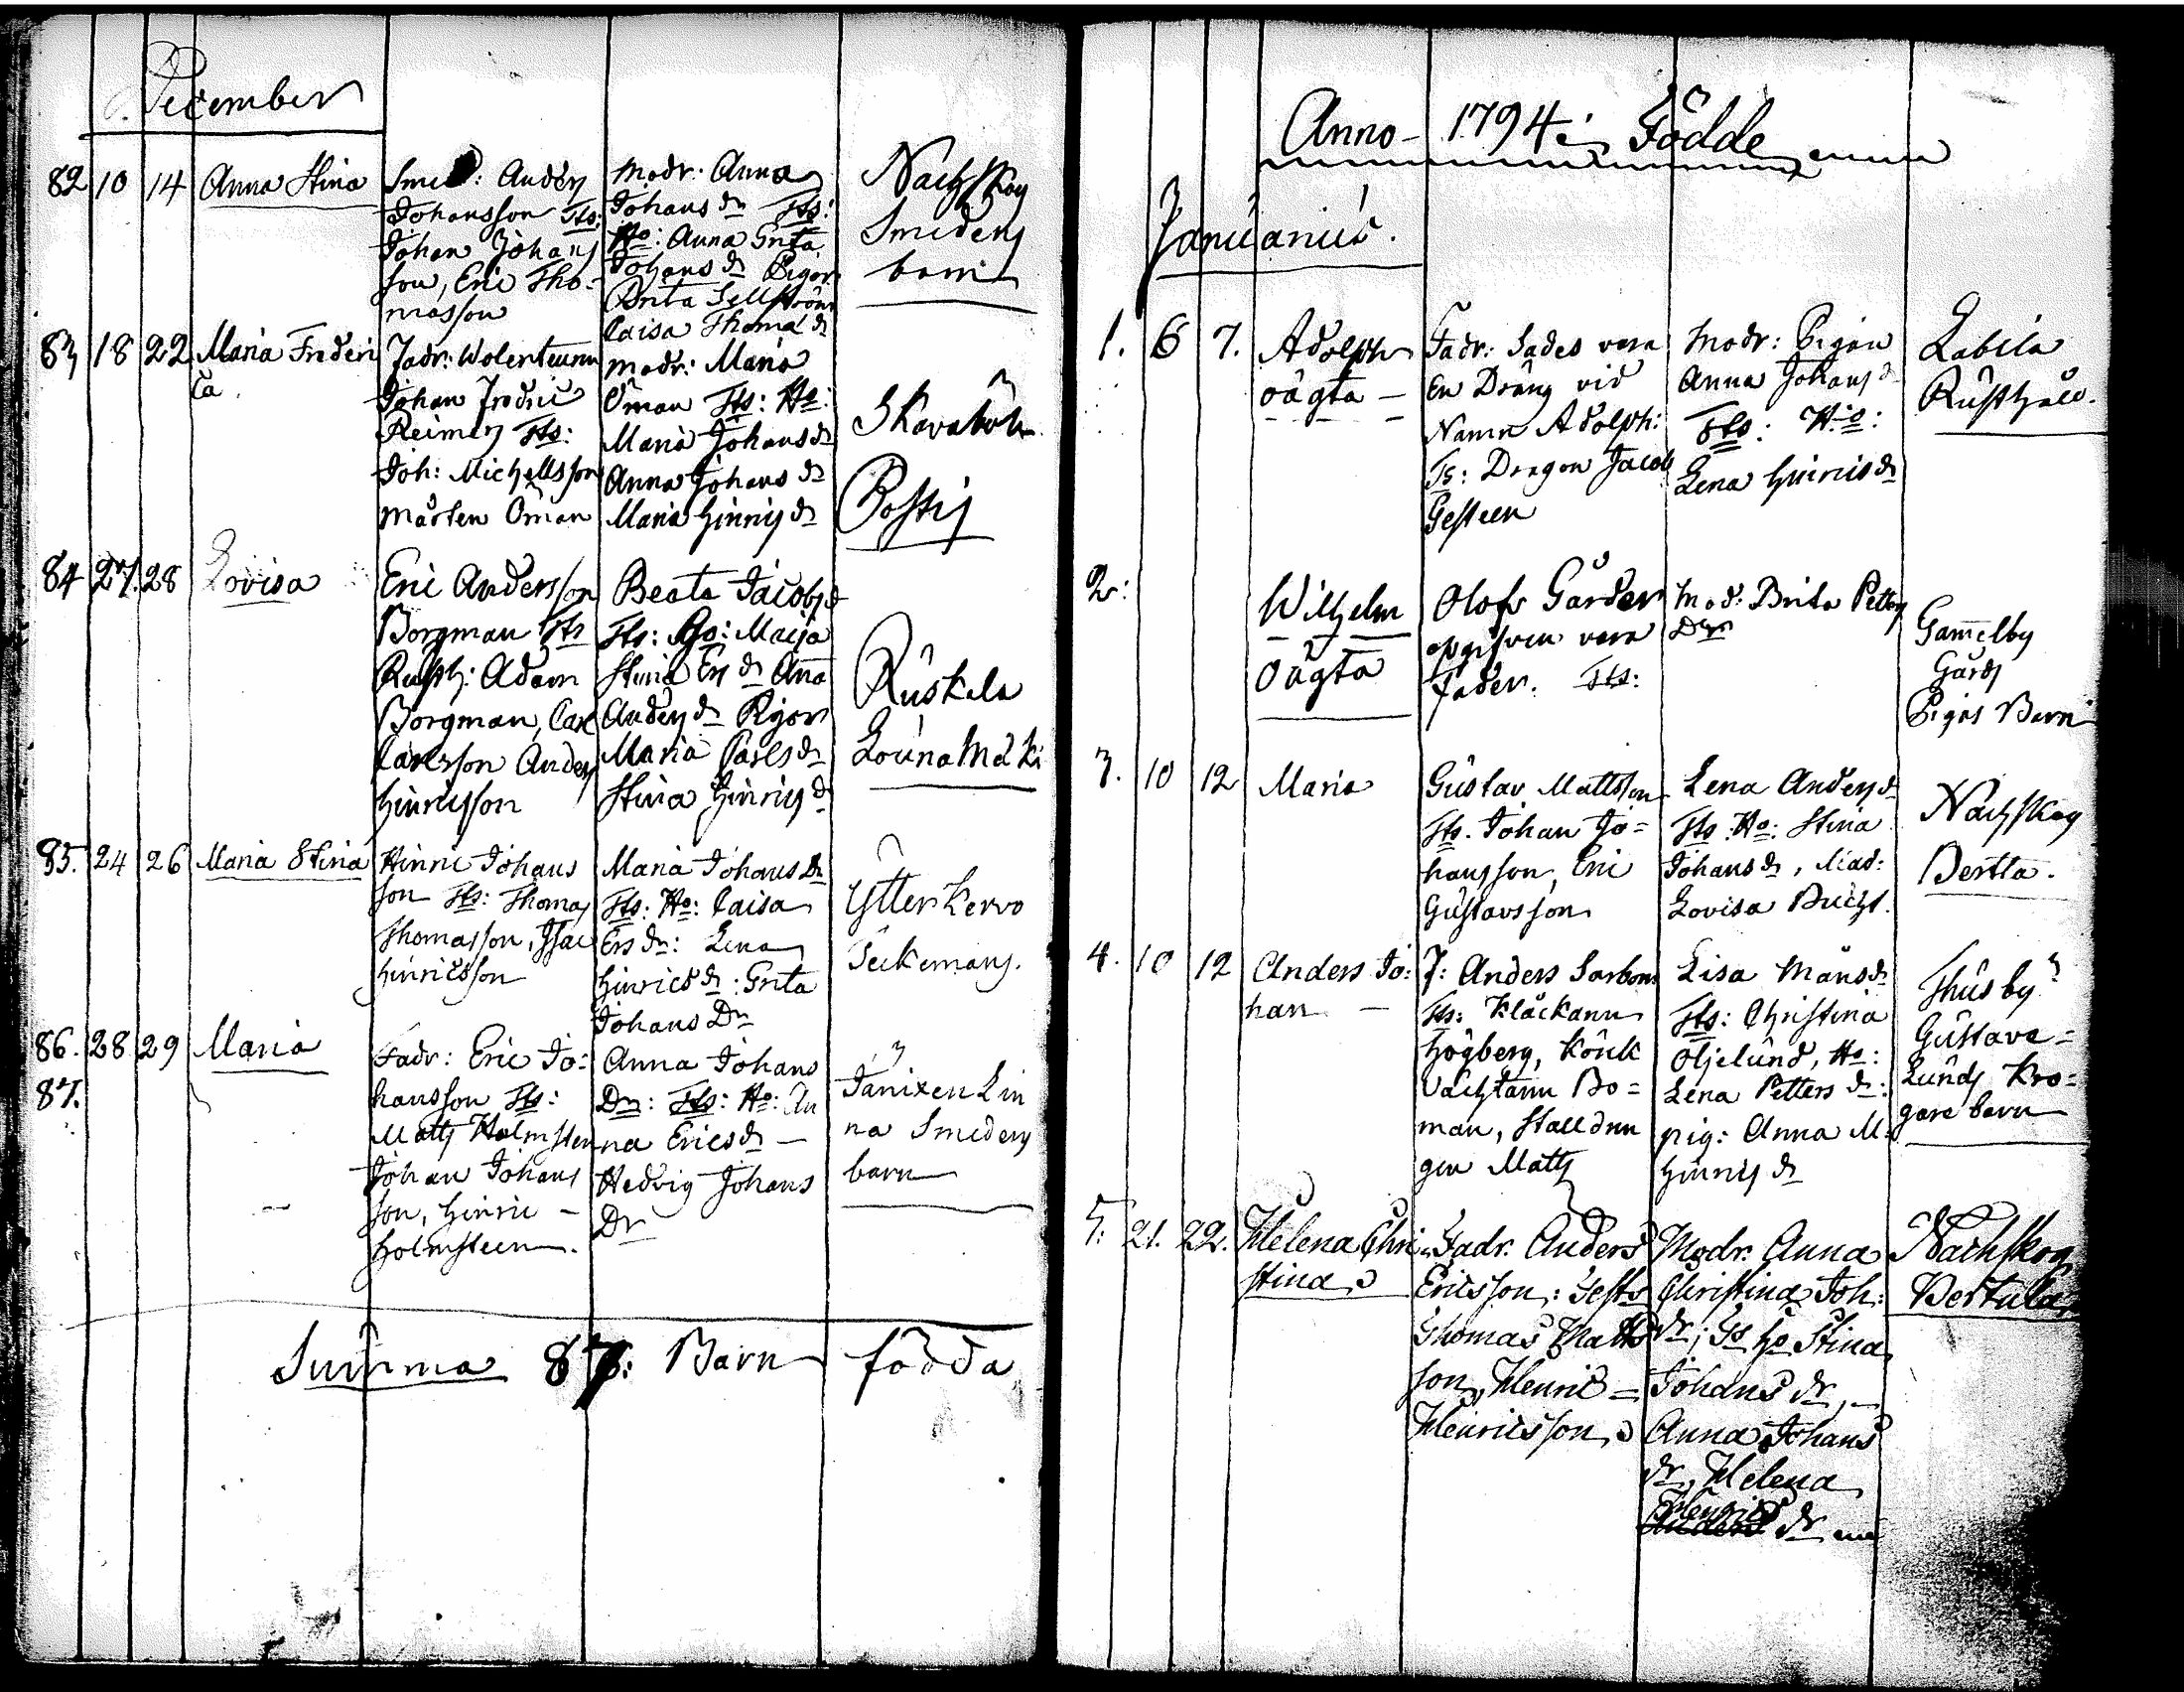 December
82 10 14 Anna Stina
Smed: Anders
Johansson Tts:
Johan Johans
son, Eric Tho=
masson
Modr: Anna
Johans dr Tts:
Ho: Anna Grita
Johans dr Pigor
Brita Sellström
Caisa Thomas dr
Nachskog
Smedens
barn
83 18 22 Maria Frederi
ca
Fadr: Wolenteuren
Johan Fredric
Reimers Tts:
Joh: Michellsson
Mårten Öman
modr: Maria
Öman Tts: Ho:
Maria Johans dr
Anna Johans dr
Maria Hinrics dr
Skavaböle
84 27. 28 Lovisa
Eric Andersson
Borgman Tts
Rusth: Adam
Borgman, Carl
Carlsson Anders
Hinricsson
Beata Jacobs dr
Tts: Ho: Maija
Stina Ers dr Anna
Anders dr Pigor
Maria Carls dr
Stina Hinrics dr
Ruskela
Lounamäki
85. 24 26 Maria Stina
Hinric Johans
son Tts: Thomas
Thomasson, Isac
Hinricsson
Maria Johans Dr
Tts: Ho: Caisa
Ers dr: Lena
Hinrics dr: Grita
Johans Dr
Ytterkervo
86. 28 29 Maria
87.
Fadr: Eric Jo=
hansson Tts:
Matts Holmsten
Johan Johans
son, Hinric -
Holmsteen.
Anna Johans
Dr: Tts: Ho: An
na Erics dr -
Hedvig Johans
Dr
Tanixen Lin
na Smedens
barn
Summa 87: Barn födda
Anno 1794 Födde
Januarius.
1. 6 7. Adolph
oägta -
Fadr: Sades vara
en Dräng vid
Namn Adolph:
Ts: Dragon Jacob
Gesteen
Modr: Pigan
Anna Johans dr
Tts: Ho:
Lena Hinrics dr
Labila
Rusthåll.
2:
Wilhelm
oägta
Olofs Gården
opgifven vara
Fader. Tts:
Mod: Brita Petters
Dr
Gammelby
Gårds
Pigas Barn
3. 10 12 Maria
Gustav Mattsson
Tts. Johan Jo=
hansson, Eric
Gustavsson
Lena Anders dr
Tts: Ho: Stina
Johans dr, Mad:
Lovisa Bucht.
Nachskog
Bertla.
4. 10 12 Anders Jo:
han -
F: Anders Sarbom
Tts: Klåckaren
Högberg,
man, Stalldren
gen Matts
Lisa Måns dr
Tts: Christina
Oljelund, Ho:
Lena Petters dr:
pig: Anna M.
Hinrics dr
Thusby
Gustava=
Lunds Kro=
gare barn
5: 21. 22. Helena Chri
stina
Fadr. Anders
Ericsson: Test
Thomas Matts
son, Henric =
Henricsson,
Modr. Anna
Christina Joh:
dr; Ts Ho Stina
Johans dr, -
Anna Johans
dr, Helena
Henrics
dr
Nachskog
Bertula